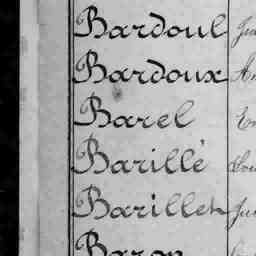 Bardoul
Bardoux
Barel
Barillé
Barillet
Baron